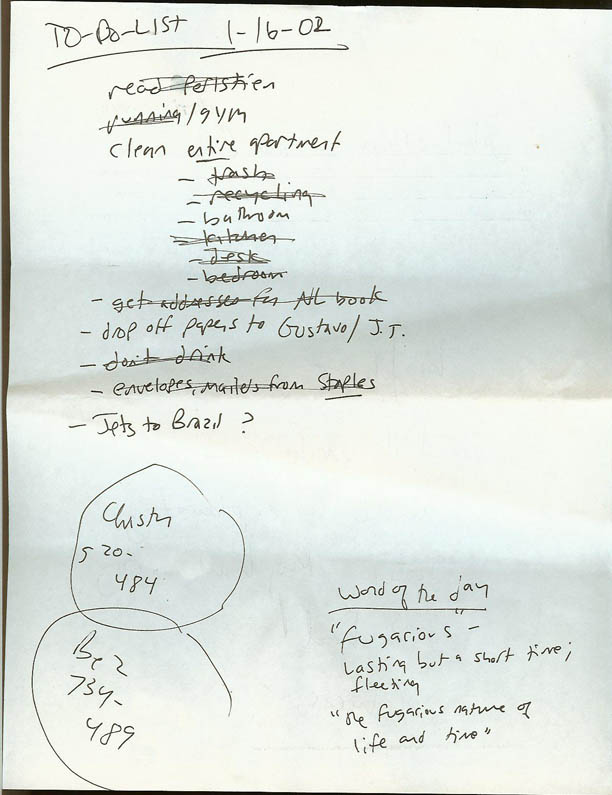 TO-DO-LIST 1-16-02
read
running/gym
clean entire apartment
- trash
- recycling
- bathroom
- kitchen
- desk
- bedroom
- get addresses for NL book
- drop off papers to Gustavo/J.T.
- don't drink
- envelopes, mailers from Staples
- Jets to Brazil?
520-
484
734-
489
Word of the day
"fugacious" -
lasting but a short time;
fleeting
"the fugacious nature of
life and time"